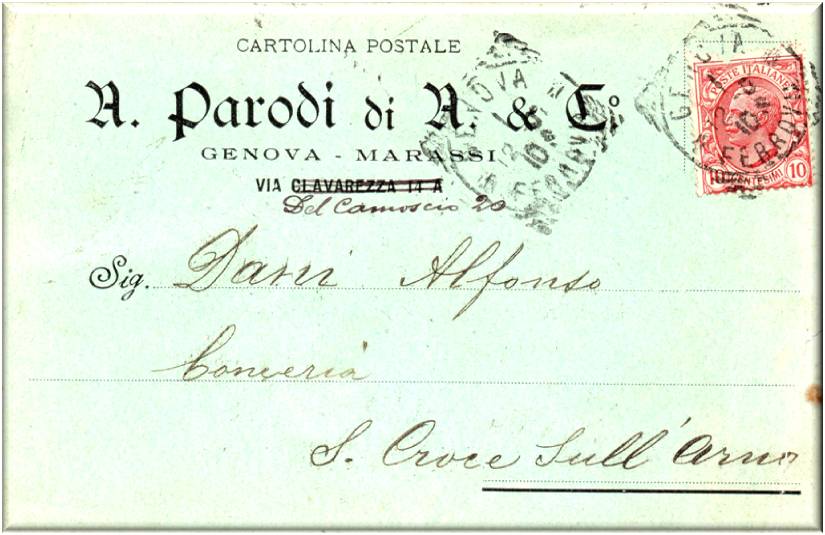 CARTOLINA POSTALE
A. Parodi di A. & C.º
GENOVA - MARASSI
VIA CLAVAREZZA 14 A
Del Camoscio 20
Sig. Dani Alfonso
Conceria
S. Croce Sull'Arno
GENOVA
FERROVIA
10
GENOVA
FERROVIA
10
POSTE ITALIANE
10 CENTESIMI 10